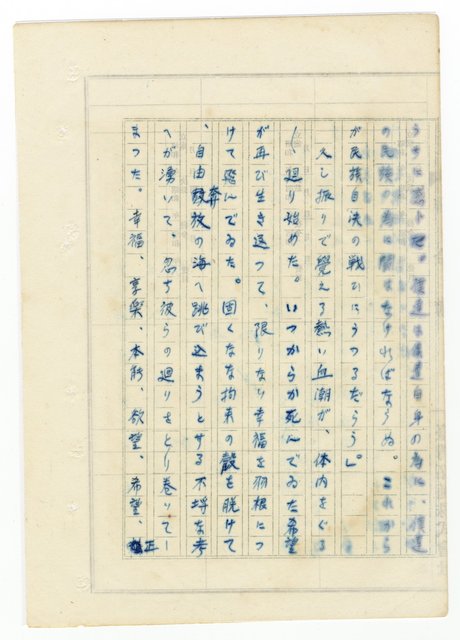 うちに。僕達は僕達自身の為に、僕達
の民族の為に闘はなければならぬ。これから
が民族自決の戦ひにうつるだらう」。
久し振りで覺える熱い血潮が、体内をぐる
〱廻り始めた。いつからか死んでゐた希望
が再び生き返つて、限りない幸福を羽根につ
けて飛んでゐた。固くなな拘束の殻を脱けて
、自由奔放の海へ跳び込まうとする不埒な考
へが湧いて、忽ち彼らの廻りをとり巻いてし
まつた。幸福、享樂、本能、欲望、希望、正